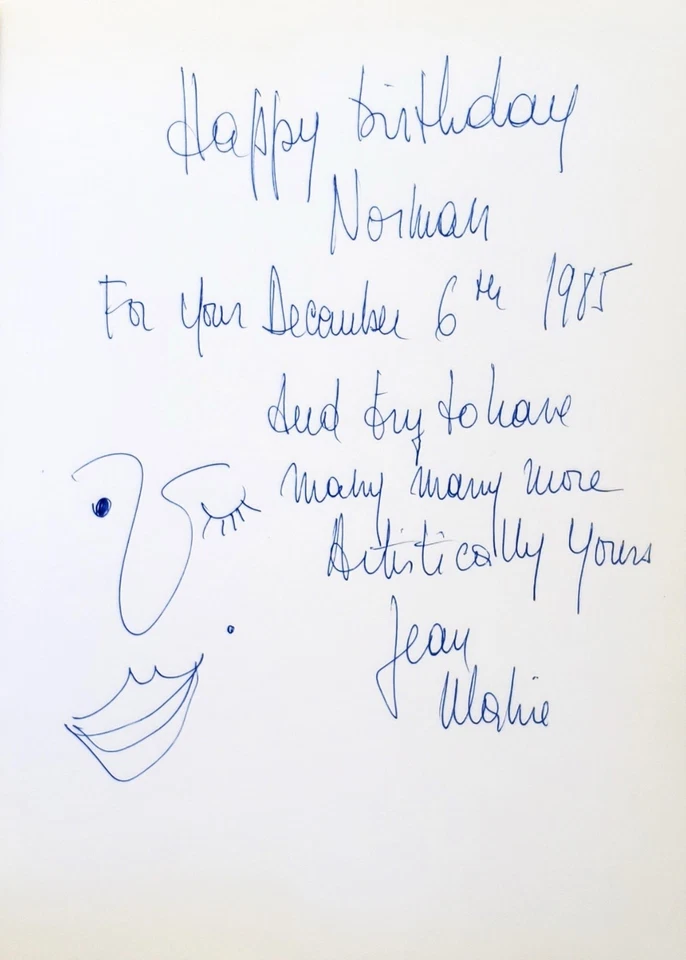 Happy birthday
Norman
For Your December 6th 1985
And try to have
many many more
Artistically Yours
Jean
Marie